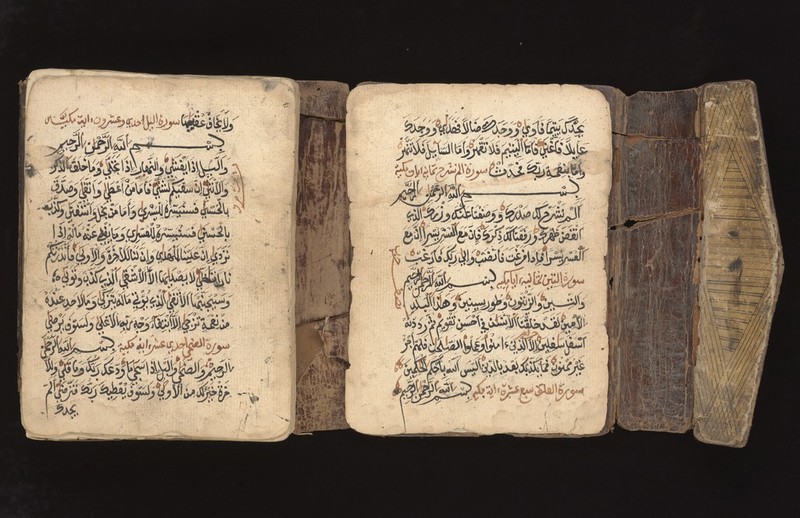 ولا يخاف عقبيها سورة اليل احدى وعشرون اية مكية
بسم الله الرحمن الرحيم
واليل اذا يغشى والنهار اذا تجلى وما خلق الذكر
والانثى ان سعيكم لشتى فاما من اعطى واتقى وصدق
بالحسنى فسنيسره لليسرى واما من بخل واستغنى وكذب
بالحسنى فسنيسره للعسرى وما يغنى عنه ماله اذا
تردى ان علينا للهدى وان لنا للاخرة والاولى فانذرتكم
نارا تلظى لا يصليها الا الاشقى الذى كذب وتولى
وسيجنبها الاتقى الذى يوتى ماله يتزكى وما لاحد عنده
من نعمة تجزى الا ابتغاء وجه ربه الاعلى ولسوف يرضى
سورة الضحى احدى عشر اية مكية بسم الله الرحمن
الرحيم والضحى واليل اذا سجى ما ودعك ربك وما قلى وللا
خرة خير لك من الاولى ولسوف يعطيك ربك فترضى الم
يجدك
يجدك يتيما فاوى ووجدك ضالا فهدى ووجدك
عايلا فاغنى فاما اليتيم فلا تقهر واما السايل فلا تنهر
واما بنعمة ربك فحدث سورة الم نشرح ثمانية ايات مكية
بسم الله الرحمن الرحيم
الم نشرح لك صدرك ووضعنا عنك وزرك الذى
انقض ظهرك ورفعنا لك ذكرك فان مع العسر يسرا ان مع
العسر يسرا فاذا فرغت فانصب والى ربك فارغب
سورة التين ثمانية ايات مكية بسم الله الرحمن الرحيم
والتين والزيتون وطور سينين وهذا البلد
الامين لقد خلقنا الانسن فى احسن تقويم ثم رددنه
اسفل سفلين الا الذين ءامنوا وعملوا الصلحت فلهم اجر
غير ممنون فما يكذبك بعد بالدين اليس الله باحكم الحكمين
سورة العلق تسع عشرة اية مكية بسم الله الرحمن الرحيم